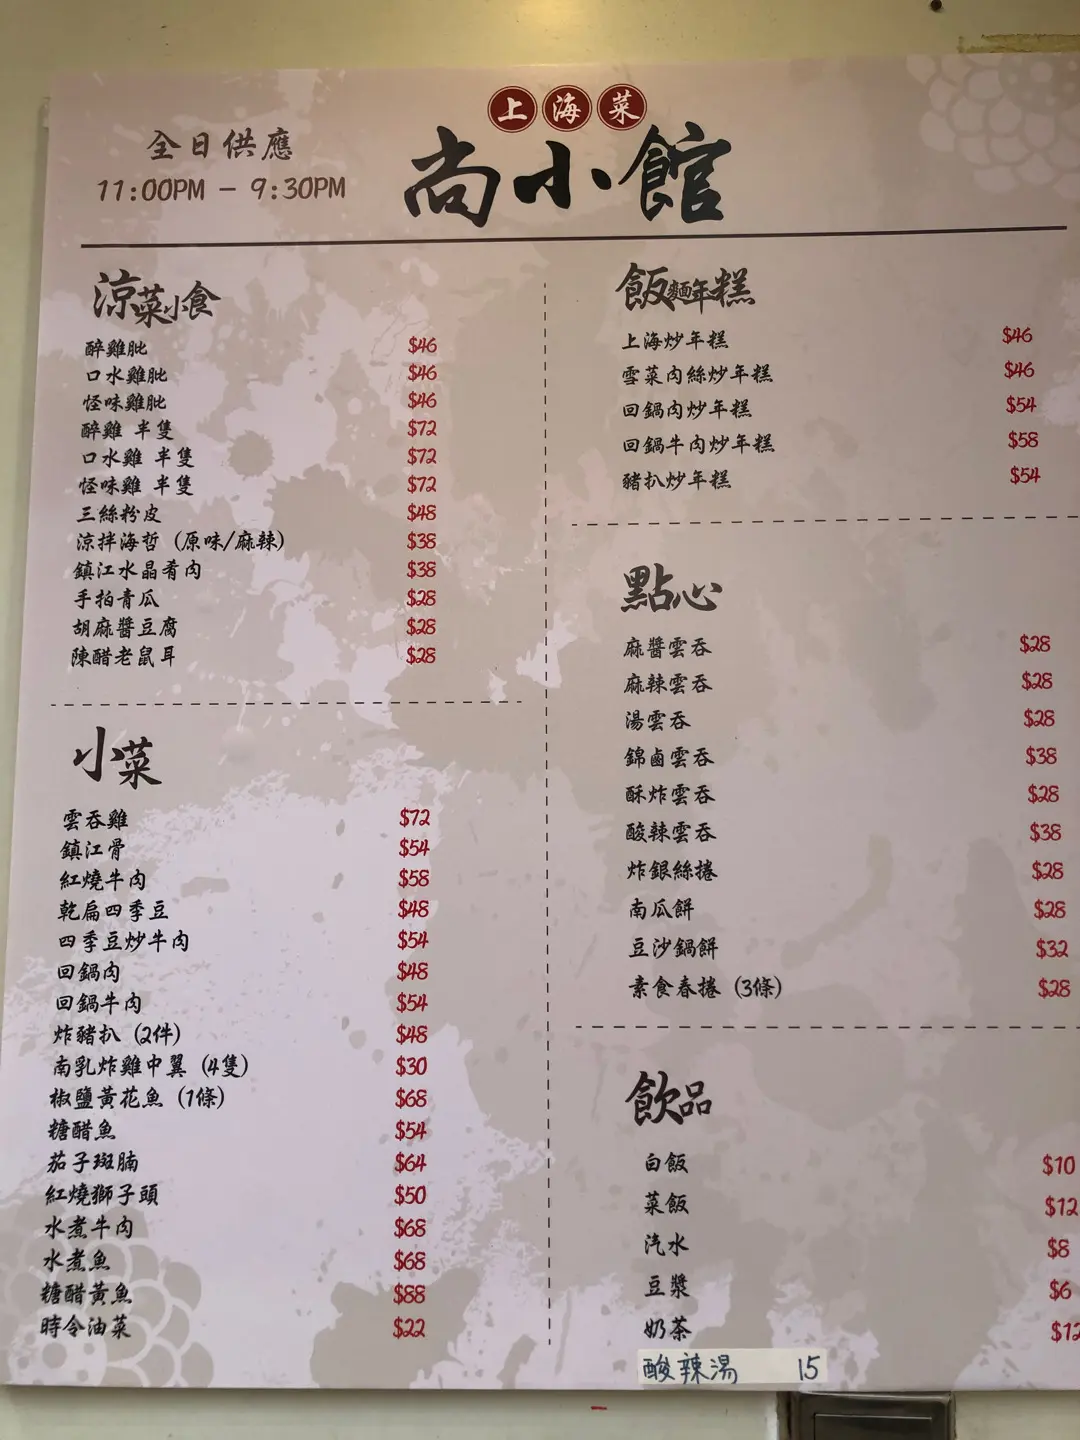 上海菜
尚小館
全日供應
11:00PM - 9:30PM
涼菜小食
醉雞肶 $46
口水雞肶 $46
怪味雞肶 $46
醉雞 半隻 $72
口水雞 半隻 $72
怪味雞 半隻 $72
三絲粉皮 $48
涼拌海哲 (原味/麻辣) $38
鎮江水晶肴肉 $38
手拍青瓜 $28
胡麻醬豆腐 $28
陳醋老鼠耳 $28
小菜
雲吞雞 $72
鎮江骨 $54
紅燒牛肉 $58
乾扁四季豆 $48
四季豆炒牛肉 $54
回鍋肉 $48
回鍋牛肉 $54
炸豬扒 (2件) $48
南乳炸雞中翼 (4隻) $30
椒鹽黃花魚 (1條) $68
糖醋魚 $54
茄子斑腩 $64
紅燒獅子頭 $50
水煮牛肉 $68
水煮魚 $68
糖醋黃魚 $88
時令油菜 $22
飯麵年糕
上海炒年糕 $46
雪菜肉絲炒年糕 $46
回鍋肉炒年糕 $54
回鍋牛肉炒年糕 $58
豬扒炒年糕 $54
點心
麻醬雲吞 $28
麻辣雲吞 $28
湯雲吞 $28
錦鹵雲吞 $38
酥炸雲吞 $28
酸辣雲吞 $38
炸銀絲捲 $28
南瓜餅 $28
豆沙鍋餅 $32
素食春捲 (3條) $28
飲品
白飯 $10
菜飯 $12
汽水 $8
豆漿 $6
奶茶 $12
酸辣湯 15